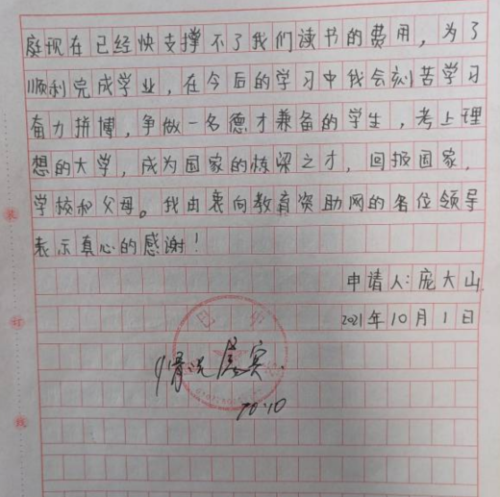 庭现在已经快支撑不了我们读书的费用，为了
顺利完成学业，在今后的学习中我会刻苦学习
奋力拼搏，争做一名德才兼备的学生，考上理
想的大学，成为国家的栋梁之才，回报国家，
学校和父母。我由衷向教育资助网的各位领导
表示真心的感谢！
申请人：庞大山
2021年10月1日
情况属实.
10.10
装
订
线